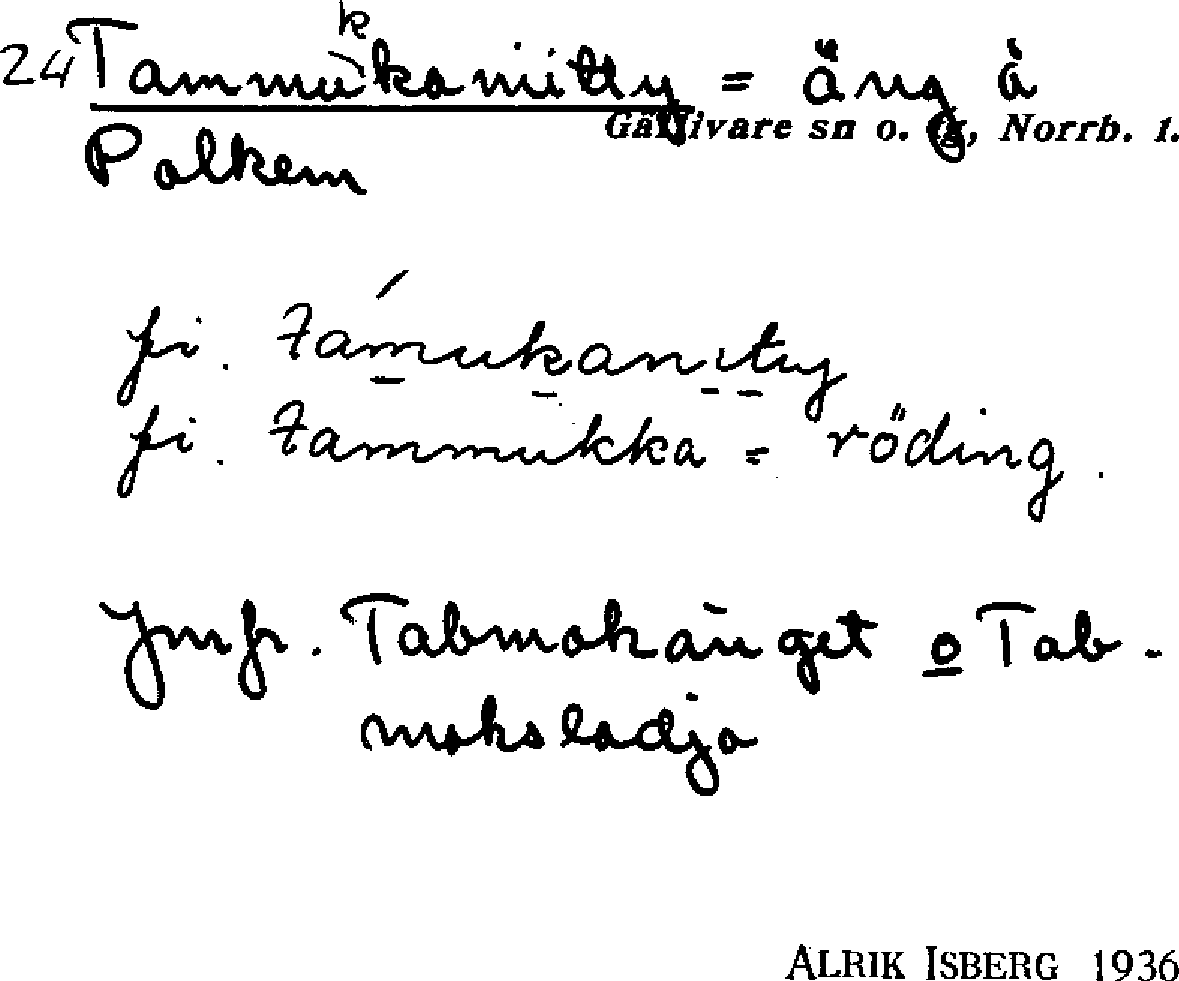 24 Tammukkaniitty = äng å
Gällivare sn o. tg, Norrb. l.
Polkem
fi. támukanıtıy
fi. tammukka = röding.
Jmfr. Tabmokänget o Tab-
moksladja
ALRIK ISBERG 1936